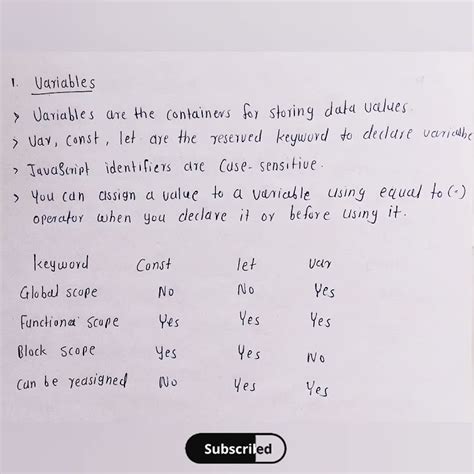 1. Variables
> Variables are the containers for storing data values.
> Var, const, let are the reserved keyword to declare variable
> JavaScript identifiers are Case-sensitive.
> You can assign a value to a variable using equal to (=)
operator when you declare it or before using it.
Keyword Const let var
Global scope No No Yes
Functional scope Yes Yes Yes
Block scope Yes Yes No
Can be reasigned No Yes Yes
Subscriled